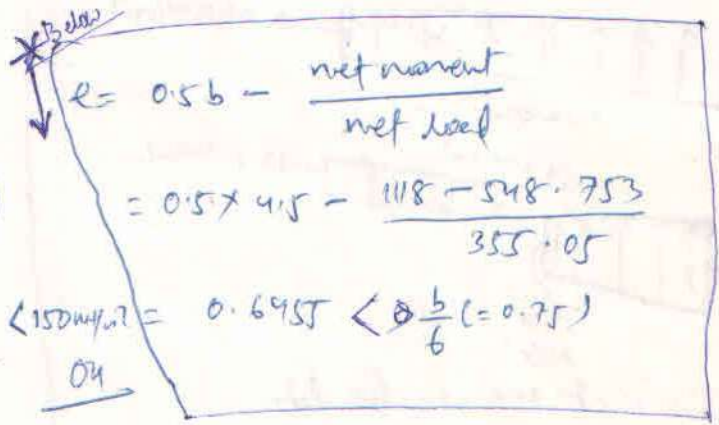 Below
e = 0.5 b - net moment / net load
= 0.5 × 4.5 - 1118 - 548.753 / 355.05
= 0.6455 < b/6 (= 0.75)
<150